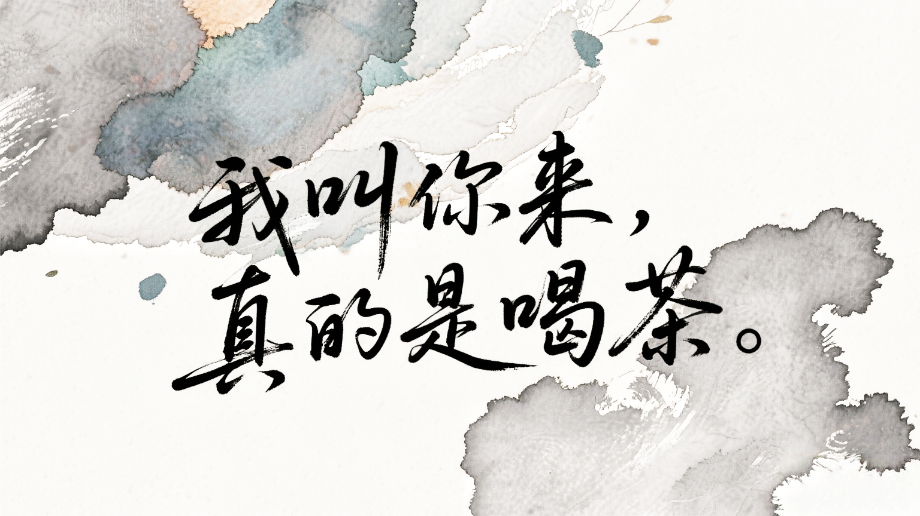 我叫你来，
真的是喝茶。